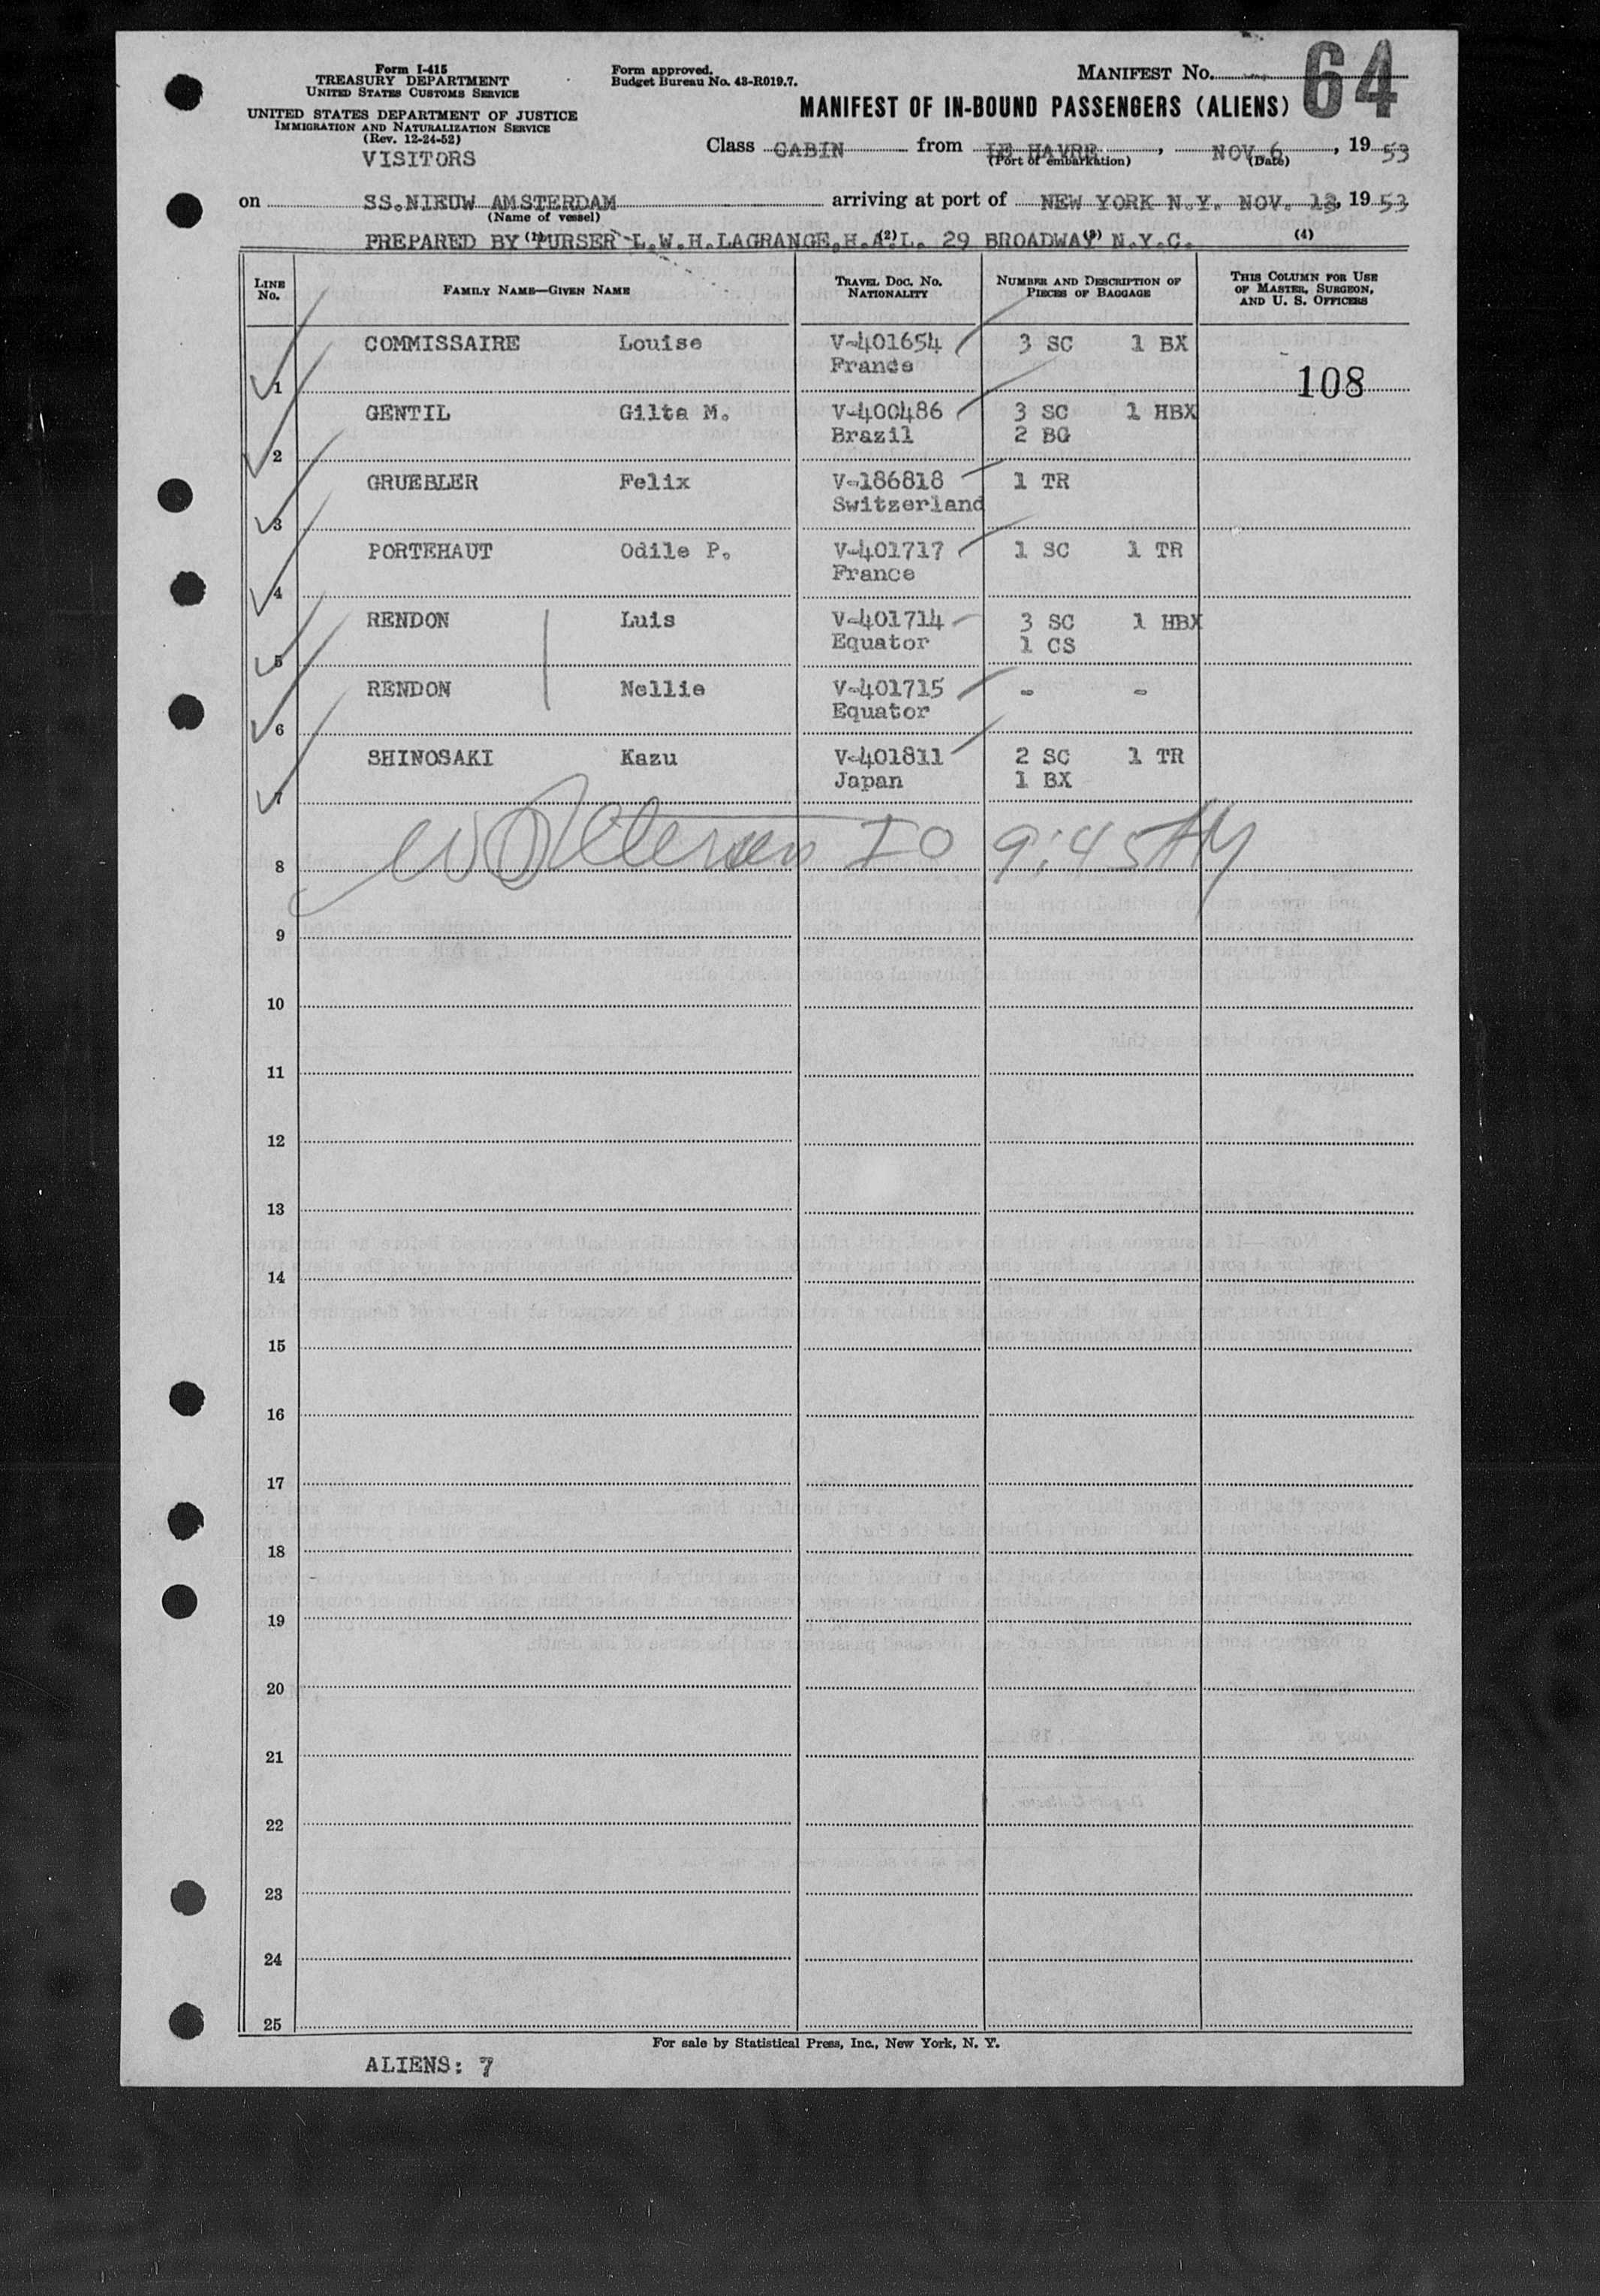 Form I-415
TREASURY DEPARTMENT
UNITED STATES CUSTOMS SERVICE
UNITED STATES DEPARTMENT OF JUSTICE
IMMIGRATION AND NATURALIZATION SERVICE
(Rev. 12-24-52)
VISITORS
Form approved.
Budget Bureau No. 43-R019.7.
MANIFEST NO. 64
MANIFEST OF IN-BOUND PASSENGERS (ALIENS)
Class CABIN from LE HAVRE, NOV 6, 1953
(Port of embarkation) (Date)
on SS.NIEUW AMSTERDAM arriving at port of NEW YORK N.Y. NOV. 13, 1953
(Name of vessel)
PREPARED BY PURSER L.W.H.LAGRANGE,H.A.L. 29 BROADWAY N.Y.C.
(1) (2) (3) (4)
LINE NO. FAMILY NAME—GIVEN NAME TRAVEL DOC. NO. NATIONALITY NUMBER AND DESCRIPTION OF PIECES OF BAGGAGE THIS COLUMN FOR USE OF MASTER, SURGEON, AND U. S. OFFICERS
COMMISSAIRE Louise V-401654 3 SC 1 BX
France
1 108
GENTIL Gilta M. V-400486 3 SC 1 HBX
Brazil 2 BG
2
GRUEBLER Felix V-186818 1 TR
Switzerland
3
PORTEHAUT Odile P. V-401717 1 SC 1 TR
France
4
RENDON Luis V-401714 3 SC 1 HBX
Equator 1 CS
5
RENDON Nellie V-401715 - -
Equator
6
SHINOSAKI Kazu V-401811 2 SC 1 TR
Japan 1 BX
7
IO 9:45 AM
8
9
10
11
12
13
14
15
16
17
18
19
20
21
22
23
24
25
For sale by Statistical Press, Inc., New York, N. Y.
ALIENS: 7